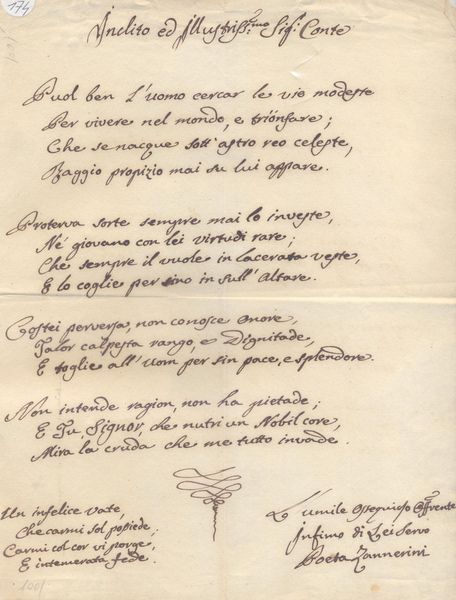 174
Inclito ed Illustriss:mo Sig: Conte
Puol ben l'uomo cercar le vie modeste
Per vivere nel mondo, e triönfare;
Che se nacque sott'astro reo celeste,
Raggio propizio mai su lui appare.
Proterva sorte sempre mai lo investe,
Nè giovano con lei virtudi rare;
Chè sempre il vuole in lacerata veste,
E lo coglie per sino in sull'Altare.
Costei perversa, non conosce onore,
Talor calpesta rango, e Dignitade,
E toglie all'Uom per sin pace, e splendore.
Non intende ragion, non ha pietade;
E Tu, Signor, che nutri un Nobil core,
Mira la cruda che me tutto invade.
Un infelice vate,
Che carmi sol possiede;
Carmi col cor vi porge,
E intemerata fede.
L'umile Ossequioso
Infimo di Lei Servo
Poeta Zannerini